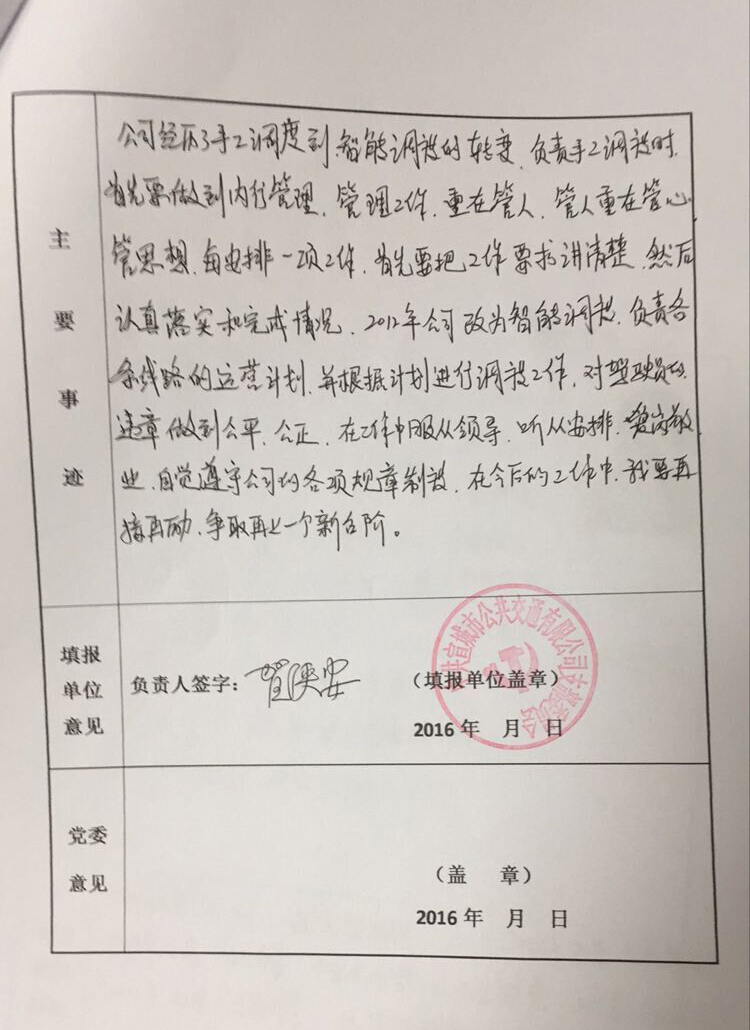 主要事迹
公司经历了手工调度到智能调度的转变，负责手工调度时，
首先要做到内行管理，管理工作，重在管人，管人重在管心，
管思想，每安排一项工作，首先要把工作要求讲清楚，然后
认真落实和完成情况，2012年公司改为智能调度，负责各
条线路的运营计划，并根据计划进行调度工作，对驾驶员的
违章做到公平、公正，在工作中服从领导，听从安排，爱岗敬
业，自觉遵守公司的各项规章制度，在今后的工作中，我要再
接再励、争取再上一个新台阶。
填报单位意见
负责人签字：
（填报单位盖章）
2016 年 月 日
中共宣城市公共交通有限公司支部委员会
党委意见
（盖 章）
2016 年 月 日